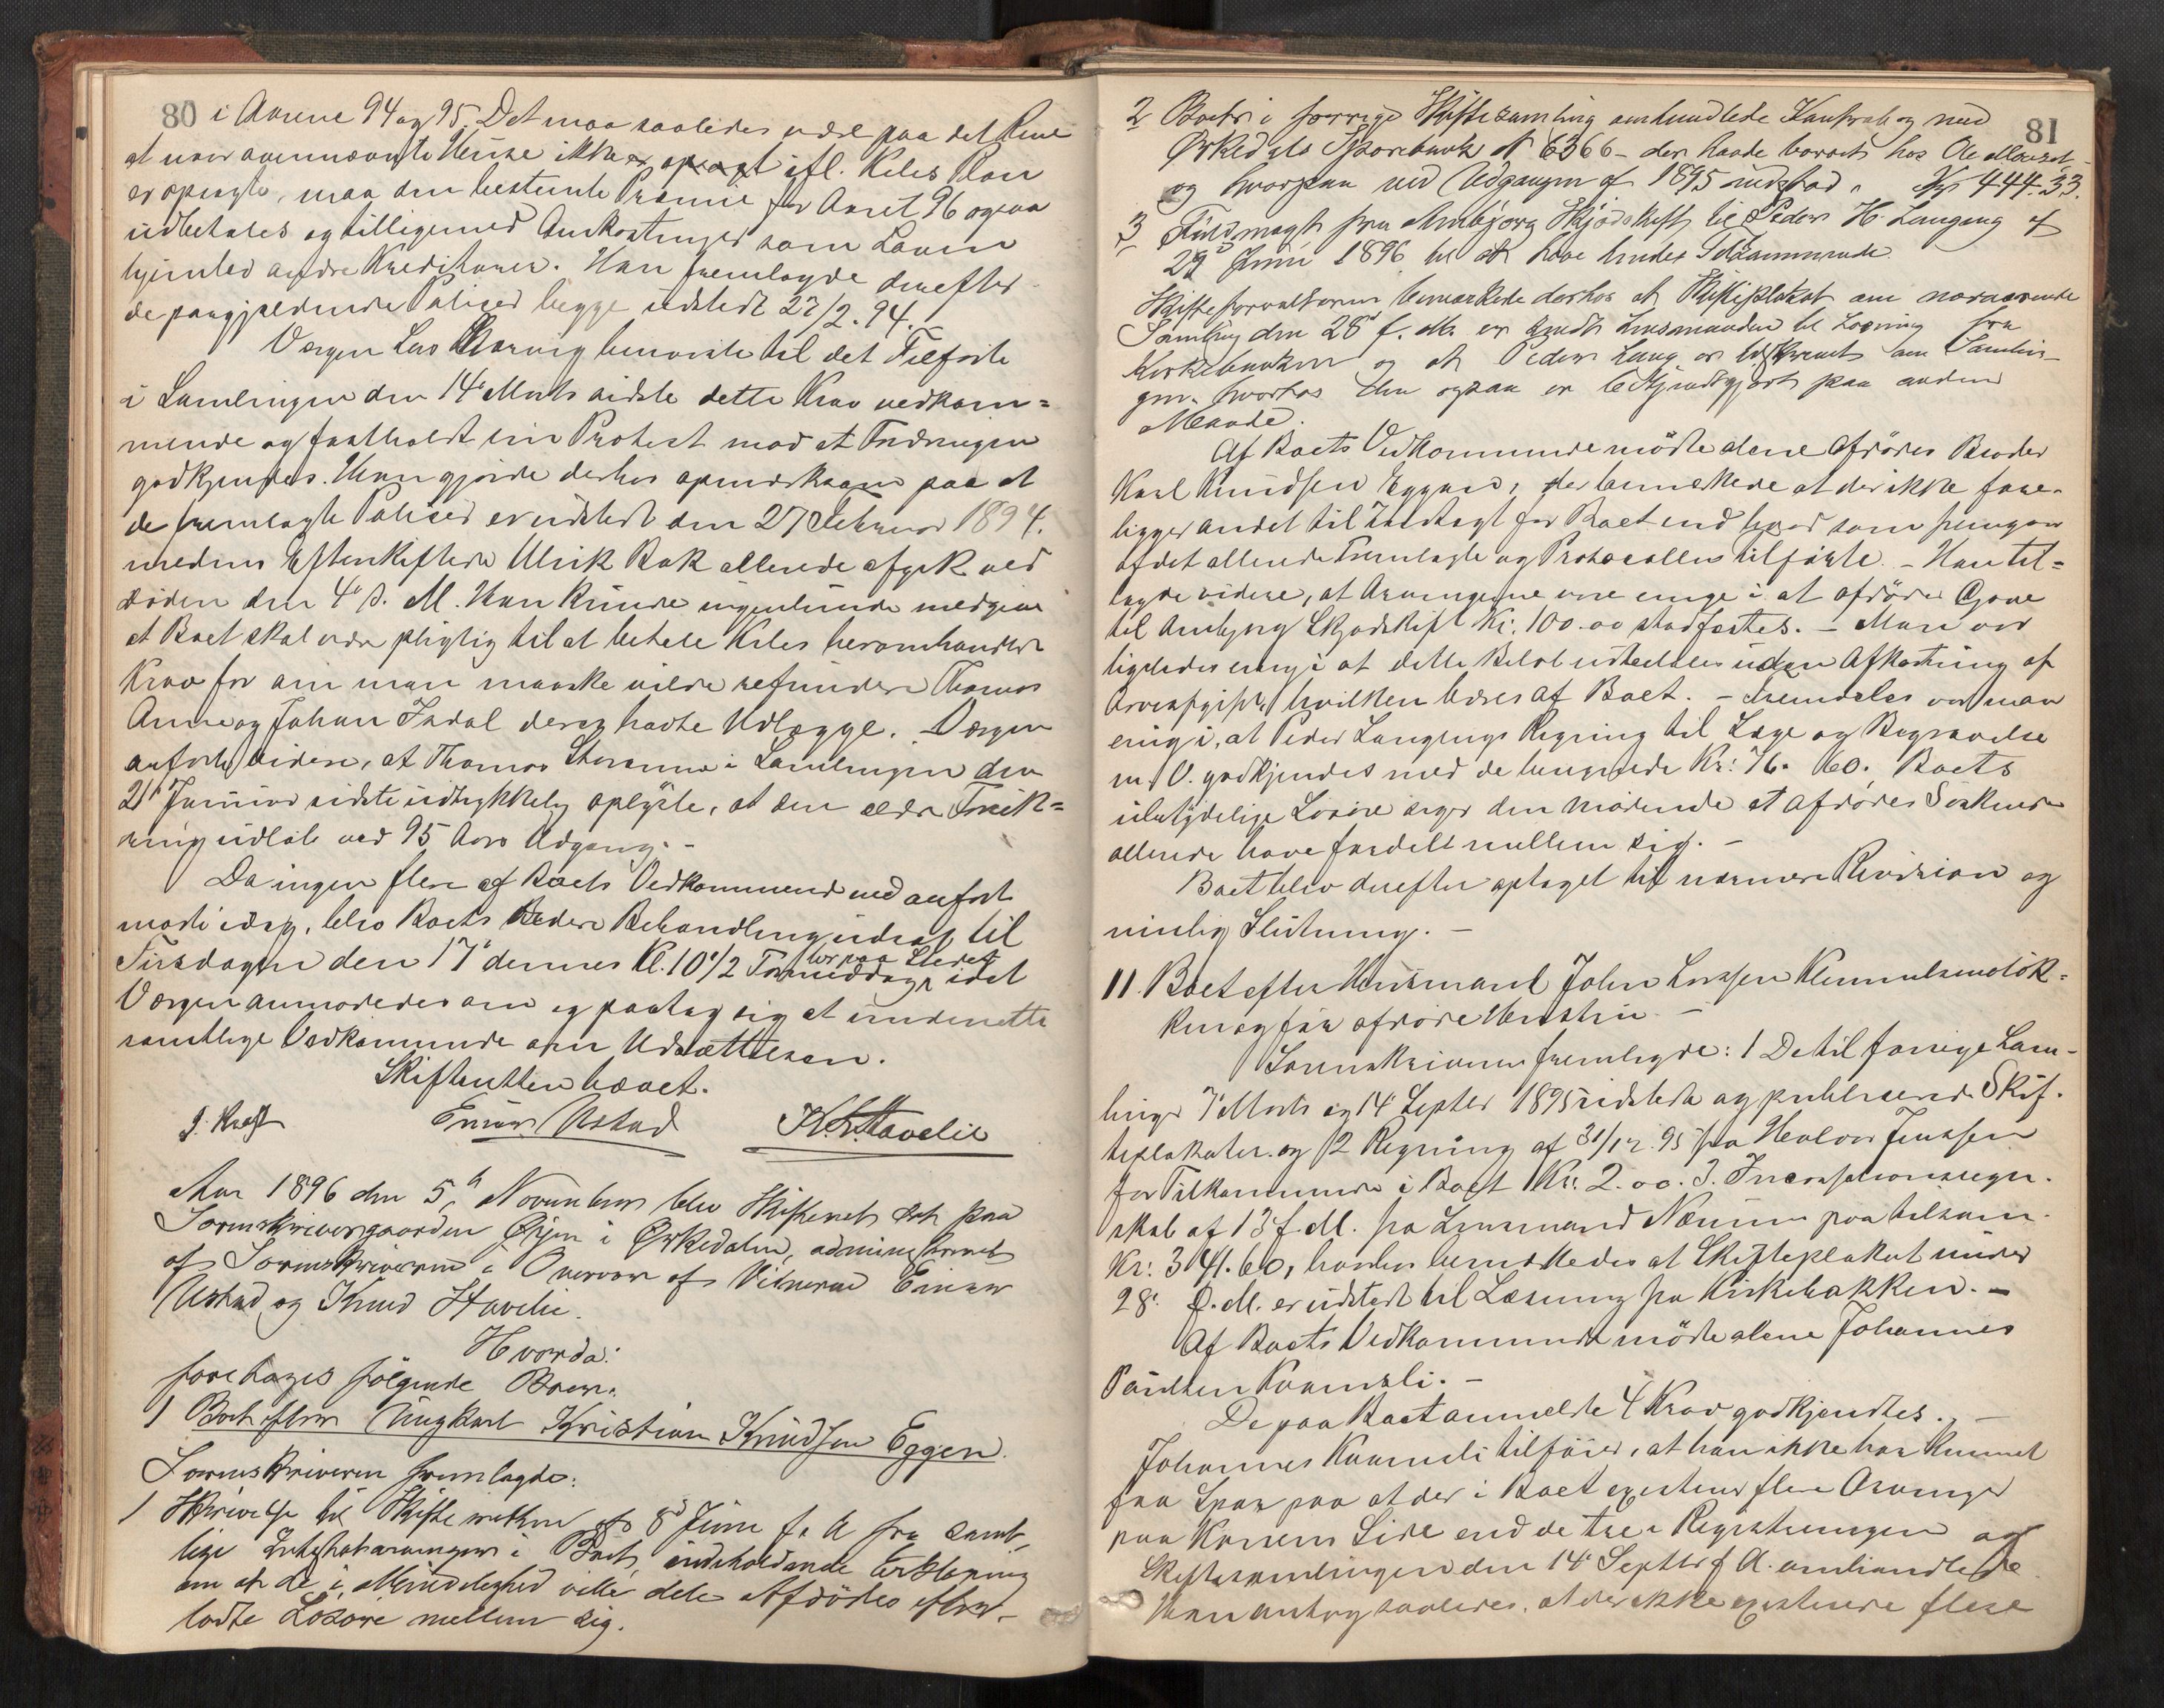 80 i Aarene 94 og 95. Det maa saaledes være paa det Rene
at naar ovennævnte Huse ikke er opsagt ifl. Keles Plan
er opsagte, maa den bestemte Præmie for Aaret 96 ogsaa
udbetales og tilligemed Omkostninger som Loven
hjemler andre Kreditorer. Han fremlagde derefter
de paagjældende Policer begge udstedt 27/2. 94.
Værgen Lars henviste til det Tilførte
i Samlingen den 14 Marts sidste dette Krav vedkom=
mende og fastholdt sin Protest mod at Fordringen
godkjendes. Han gjorde derhos opmerksom paa at
de fremlagte Policer er udstedt den 27 Februar 1894.
medens Efterskiftede Ulrik Bak allerede afgik ved
Døden den 4 s. M. Han kunde ingenlunde medgive
at Boet skal være pligtig til at betale Keles heromhandlede
Krav for om man maaske vilde refundere Thomas
Aune og Johan Indal deres havte Udlægge. Værgen
anførte videre, at Thomas i Samlingen den
21 Januar sidste udtrykkelig oplyste, at den ældre Forsik=
ring udløb ved 95 Aars Udgang. -
Da ingen flere af Boets Vedkommende ved anført
mødte idag, blev Boets videre Behandling udsat til
Tirsdagen den 17 dennes Kl. 10 1/2 Formiddag her paa Stedet idet
Værgen anmodedes om og paatog sig at underrette
samtlige Vedkommende om Udsættelsen.
Skifteretten hævet.
J. Kraft Einar Ustad K. Stavelie
Aar 1896 den 5 November blev Skifteret sat paa
Sorenskrivergaarden i Ørkedalen, administreret
af Sorenskriveren i Overvær af Vidnerne Einar
Ustad og Knud Stavelie.
Hvorda:
foretages følgende Boer:
1 Boet efter Ungkarl Kristian Knudsen Eggen.
Sorenskriveren fremlagde:
1 Skrivelse til Skifteretten af 8 Juni f. A fra samt-
lige Livsarvinger i Boet, indeholdende Erklæring
om at de i Mindelighed ville dele Afdødes efter-
ladte Løsøre mellem sig.
81
2 Boets i forrige Skiftesamling omhandlede Kontrabog med
Ørkedals Sparebank № 6366 - der havde beroet hos Ole
og hvorpaa ved Udgangen af 1895 indstod Kr 444.33.
3 Fuldmagt fra Ambjørg Skjødskift til Peder H. Langeng af
29 Juni 1896 til at hæve hendes Tilkommende.
Skifteforvalteren bemærkede derhos at Skifteplakat om nærværende
Samling den 28 f. M. er sendt Lensmanden til Læsning fra
Kirkebakken og at Peder Laug er tilskrevet om Samlin-
gen, hvorhos den ogsaa er bekjendtgjort paa anden
Maade.
Af Boets Vedkommende mødte alene Afdødes Broder
Karl Knudsen Eggen, der bemerkede at der ikke fore-
ligger andet til Indtægt for Boet end hvad som fremgaar
af det allerede Fremlagte og Protocollen tilførte. - Han til=
lagde videre, at Arvingerne vare enige i at Afdødes Gave
til Ambjørg Skjødskift Kr. 100.00 stadfæstes. - Man var
ligeledes enig i at dette Beløb udbetales uden Afkortning af
Arveafgift, hvilken bæres af Boet. - Fremdeles var man
enig i, at Peder Langengs Regning til Læge og Begravelse
m. V. godkjendes med de beregnede Kr: 76. 60. Boets
ubetydelige Løsøre siger den mødende at Afdødes Søskende
allerede have fordelt mellem sig. -
Boet blev derefter optaget til nærmere Revision og
mulig Slutning. -
11. Boet efter Husmand John Larsen Klemmetsmoløk-
ken og før afdøde Hustru. -
Sorenskriveren fremlagde: 1 De til forrige Sam-
linger 7 Marts og 14 Septbr 1895 udstedte og publicerede Skif-
teplakater og 2 Regning af 31/12.95 fra Halvor Jenssen
for Tilkommende i Boet Kr. 2.00. 3. Incassationsregn-
skab af 13 f. M. fra Lensmand Narum paa tilsam.
Kr: 341.60, hvorhos bemerkedes at Skifteplakat under
28. f. M. er udstedt til Læsning fra Kirkebakken. -
Af Boets Vedkommende mødte alene Johannes
Paulsen Kvamsli. -
De paa Boet anmeldte 4 Krav godkjendtes. -
Johannes Kvamsli tilføier, at han ikke har kunnet
faa Spor paa at der i Boet existerer flere Arvinger
paa Konens Side end de tre i Registreringen og
Skiftesamlingen den 14 Septbr f. A. omhandlede.
Han antog saaledes, at der ikke existerede flere